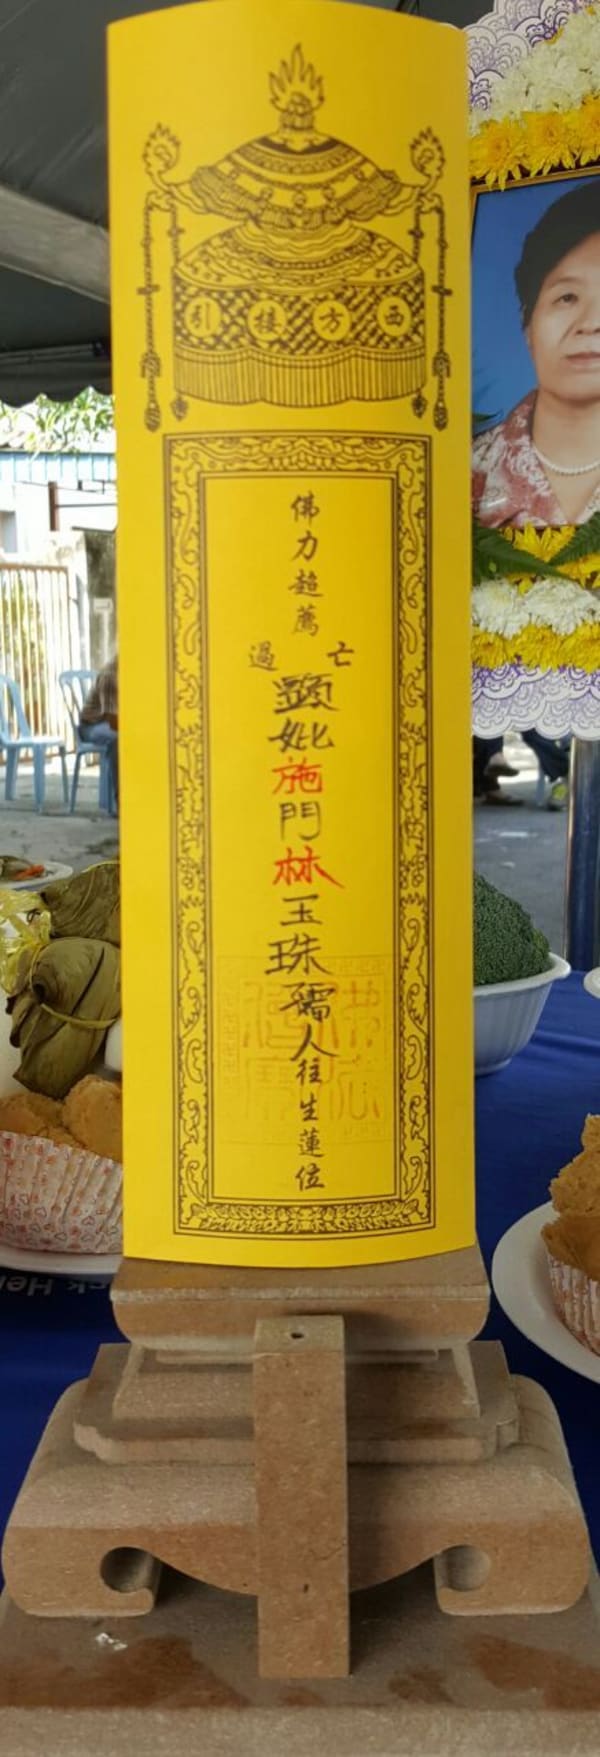 西方接引
佛力超薦
亡過
顕妣施門林玉珠孺人往生蓮位